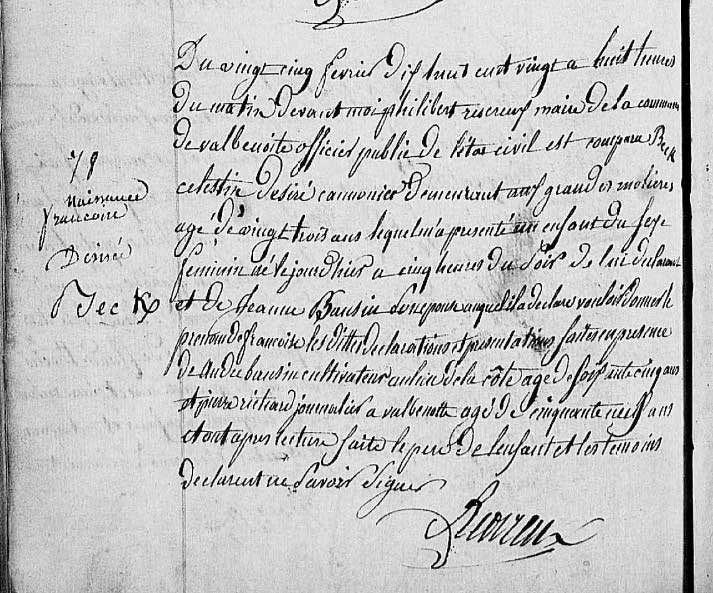 Du vingt cinq fevrier dix huit cent vingt a huit heures
du matin devant moi philibert maire de la commune
de valbenoite officier public de l'état civil est comparu Beck
celestin desiré demeurant aux grandes molieres
agé de vingt trois ans lequel m'a presenté un enfant du sexe
feminin né le jourdhier a cinq heures du soir de lui declarant
et de Jeanne Bansin son epouse auquel il a declare vouloir donner le
prenom de francoise les dittes declarations et presentations faites en presence
de Andre bansin cultivateur au lieu de la côte age de soixante cinq ans
et pierre richard journalier a valbenoite agé de cinquante neuf ans
et ont apres lecture faite le pere de lenfant et les temoins
declarent ne savoir signer
78
naissance
francoise
Desirée
Beck